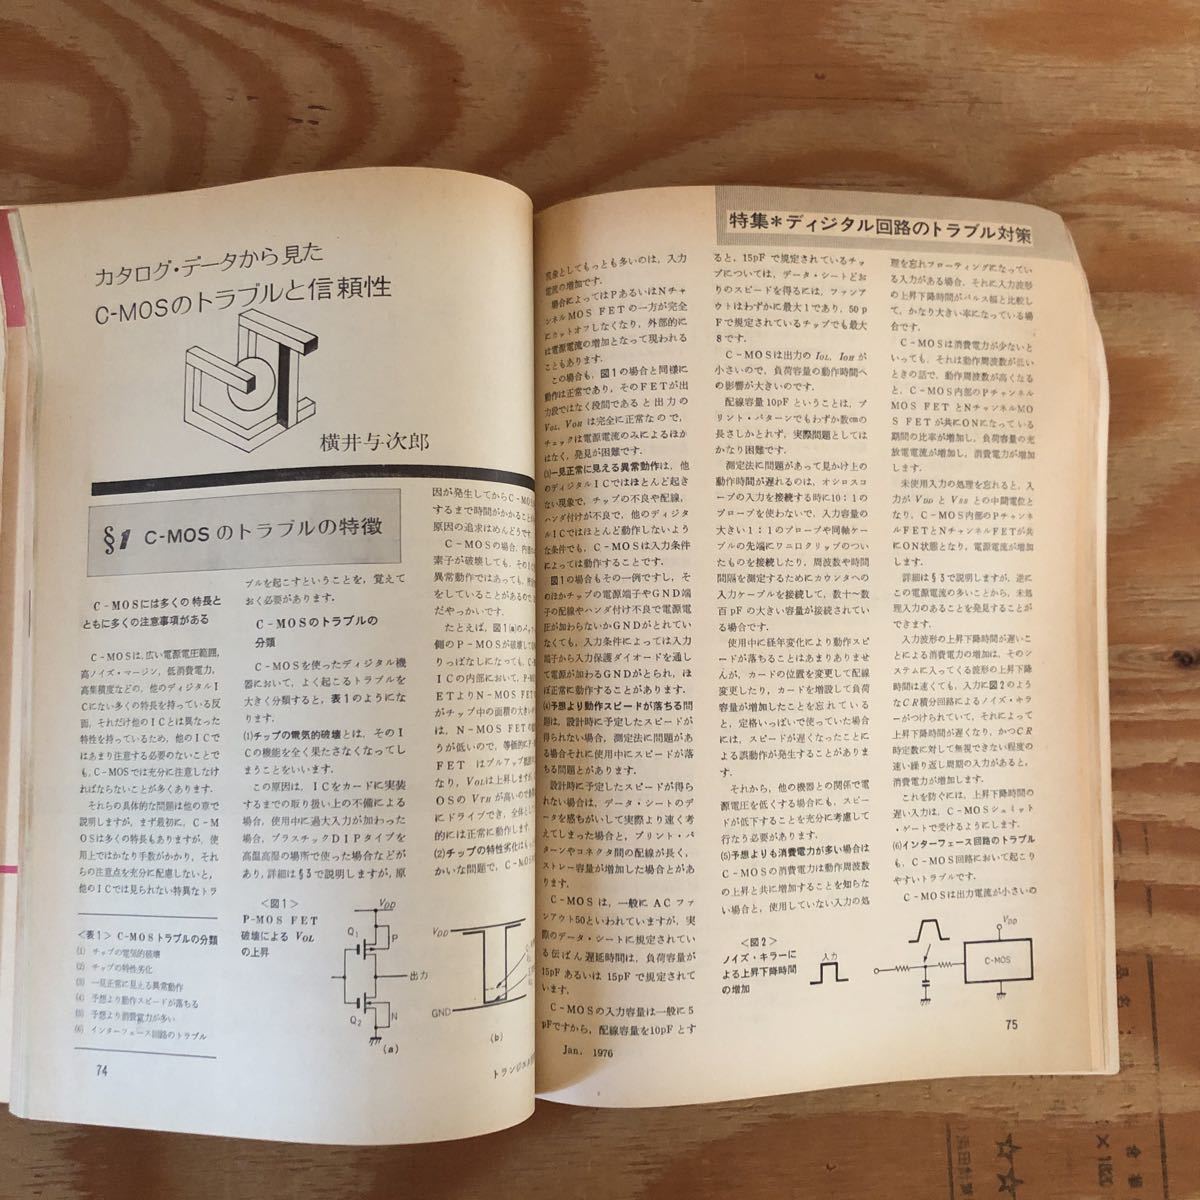 カタログ・データから見た
C-MOSのトラブルと信頼性
横井与次郎
§1 C-MOSのトラブルの特徴
C-MOSには多くの特長と
ともに多くの注意事項がある
C-MOSは,広い電源電圧範囲,
高ノイズ・マージン,低消費電力,
高集積度などの,他のディジタルI
Cにない多くの特長を持っている反
面,それだけ他のICとは異なった
特性を持っているため,他のICで
はあまり注意する必要のないことで
も,C-MOSでは充分に注意しなけ
ればならないことが多くあります.
それらの具体的な問題は他の章で
説明しますが,まず最初に,C-M
OSは多くの特長もありますが,使
用上ではかなり手数がかかり,それ
らの注意点を充分に配慮しないと,
他のICでは見られない特異なトラ
<表1> C-MOSトラブルの分類
(1) チップの電気的破壊
(2) チップの特性劣化
(3) 一見正常に見える異常動作
(4) 予想より動作スピードが落ちる
(5) 予想より消費電力が多い
(6) インターフェース回路のトラブル
74
ブルを起こすということを,覚えて
おく必要があります.
C-MOSのトラブルの
分類
C-MOSを使ったディジタル機
器において,よく起こるトラブルを
大きく分類すると,表1のようにな
ります.
(1)チップの電気的破壊とは,そのI
Cの機能を全く果たさなくなってし
まうことをいいます.
この原因は,ICをカードに実装
するまでの取り扱い上の不備による
場合,使用中に過大入力が加わった
場合,プラスチックDIPタイプを
高温高湿の場所で使った場合などが
あり,詳細は§3で説明しますが,原
<図1>
P-MOS FET
破壊によるVOL
の上昇
VDD
Q1
P
出力
Q2
N
(a)
因が発生してからC-MOS
するまで時間がかかることが
原因の追求はめんどうです.
C-MOSの場合,内部の
素子が破壊しても,そのI
異常動作ではあっても,
をしていることがあるので
だやっかいです.
たとえば,図1(a)の
側のP-MOSが破壊して
りっぱなしになっても,C-
ICの内部において,P-M
ETよりN-MOS FET
がチップ中の面積の大き
は,N-MOS FETの
うが低いので,等価的にP-
FETはプルアップ
なり,VOLは上昇しますが
OSのVTHが高いので
にドライブでき,全体と
的には正常に動作します.
(2)チップの特性劣化は
かいな問題で,C-MOS
VDD
GND
(b)
トランジスタ
特集*ディジタル回路のトラブル対策
現象としてもっとも多いのは,入力
電流の増加です.
場合によってはPあるいはNチャ
ンネルMOS FETの一方が完全
にカットオフしなくなり,外部的に
は電源電流の増加となって現われる
こともあります.
この場合も,図1の場合と同様に
動作は正常であり,そのFETが出
力段ではなく段間であると出力の
VOL, VOHは完全に正常なので,
チェックは電源電流のみによるほか
はなく,発見が困難です.
(3)一見正常に見える異常動作は,他
のディジタルICではほとんど起き
ない現象で,チップの不良や配線,
ハンダ付けが不良で,他のディジタ
ルICではほとんど動作しないよう
な条件でも,C-MOSは入力条件
によっては動作することです.
図1の場合もその一例ですし,そ
のほかチップの電源端子やGND端
子の配線やハンダ付け不良で電源電
圧が加わらないかGNDがとれてい
なくても,入力条件によっては入力
端子から入力保護ダイオードを通し
て電源が加わるGNDがとられ,ほ
ぼ正常に動作することがあります.
(4)予想より動作スピードが落ちる問
題は,設計時に予定したスピードが
得られない場合,測定法に問題があ
る場合それに使用中にスピードが落
ちる問題とがあります.
設計時に予定したスピードが得ら
れない場合は,データ・シートのデ
ータを感ちがいして実際より速く考
えてしまった場合と,プリント・パ
ターンやコネクタ間の配線が長く,
ストレー容量が増加した場合とがあ
ります.
C-MOSは,一般にACファ
ンアウト50といわれていますが,実
際のデータ・シートに規定されてい
る伝ぱん遅延時間は,負荷容量が
15pFあるいは15pFで規定されて
います.
C-MOSの入力容量は一般に5
pFですから,配線容量を10pFとす
Jan. 1976
ると,15pFで規定されているチッ
プについては,データ・シートどお
りのスピードを得るには,ファンア
ウトはわずかに最大1であり,50p
Fで規定されているチップでも最大
8です.
C-MOSは出力のIOL, IOHが
小さいので,負荷容量の動作時間へ
の影響が大きいのです.
配線容量10pFということは,プ
リント・パターンでもわずか数cmの
長さしかとれず,実際問題としては
かなり困難です.
測定法に問題があって見かけ上の
動作時間が遅れるのは,オシロスコ
ープの入力を接続する時に10:1の
プローブを使わないで,入力容量の
大きい1:1のプローブや同軸ケー
ブルの先端にワニロクリップのつい
たものを接続したり,周波数や時間
間隔を測定するためにカウンタへの
入力ケーブルを接続して,数十〜数
百pFの大きい容量が接続されてい
る場合です.
使用中に経年変化により動作スピ
ードが落ちることはあまりありませ
んが,カードの位置を変更して配線
変更したり,カードを増設して負荷
容量が増加したことを忘れている
と,定格いっぱいで使っていた場合
には,スピードが遅くなったことに
よる誤動作が発生することがありま
す.
それから,他の機器との関係で電
源電圧を低くする場合にも,スピー
ドが低下することを充分に考慮して
行なう必要があります.
(5)予想よりも消費電力が多い場合は
C-MOSの消費電力は動作周波数
の上昇と共に増加することを知らな
い場合と,使用していない入力の処
<図2>
ノイズ・キラーに
よる上昇下降時間
の増加
入力
理を忘れフローティングになってい
る入力がある場合,それに入力波形
の上昇下降時間がパルス幅と比較し
て,かなり大きい率になっている場
合です.
C-MOSは消費電力が少ないと
いっても,それは動作周波数が低い
ときの話で,動作周波数が高くなる
と,C-MOS内部のPチャンネル
MOS FETとNチャンネルMO
S FETが共にONになっている
期間の比率が増加し,負荷容量の充
放電電流が増加し,消費電力が増加
します.
未使用入力の処理を忘れると,入
力がVDDとVSSとの中間電位と
なり,C-MOS内部のPチャンネ
ルFETとNチャンネルFETが共
にON状態となり,電源電流が増加
します.
詳細は§3で説明しますが,逆に
この電源電流の多いことから,未処
理入力のあることを発見することが
できます.
入力波形の上昇下降時間が遅いこ
とによる消費電力の増加は,そのシ
ステムに入ってくる波形の上昇下降
時間は速くても,入力に図2のよう
なCR積分回路によるノイズ・キラ
ーがつけられていて,それによって
上昇下降時間が遅くなり,かつCR
時定数に対して無視できない程度の
速い繰り返し周期の入力があると,
消費電力が増加します.
これを防ぐには,上昇下降時間の
遅い入力は,C-MOSシュミット
・ゲートで受けるようにします.
(6)インターフェース回路のトラブル
も,C-MOS回路において起こり
やすいトラブルです.
C-MOSは出力電流が小さいの
VDD
C-MOS
75